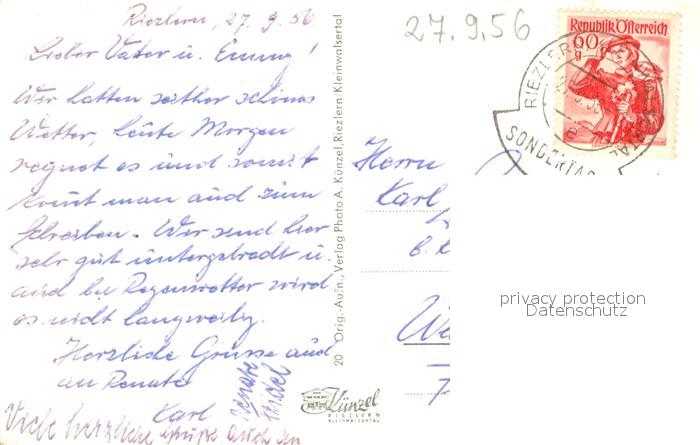 Riezlern, 27.9.56
Lieber Vater u. Emmy!
Wir hatten seither schönes
Wetter, heute Morgen
regnet es und somit
kommt man auch zum
schreiben. Wir sind hier
sehr gut untergebracht u.
auch bei Regenwetter wird
es nicht langweilig.
Herzliche Grüsse auch
an Renate
Karl
Viele herzliche Grüße auch an
20 Orig.-Aufn., Verlag Photo A. Künzel, Riezlern-Kleinwalsertal
Künzel
RIEZLERN
KLEINWALSERTAL
27.9.56
Republik Österreich
60
g
RIEZLER
SONDERTA
Herrn
Karl
privacy protection
Datenschutz